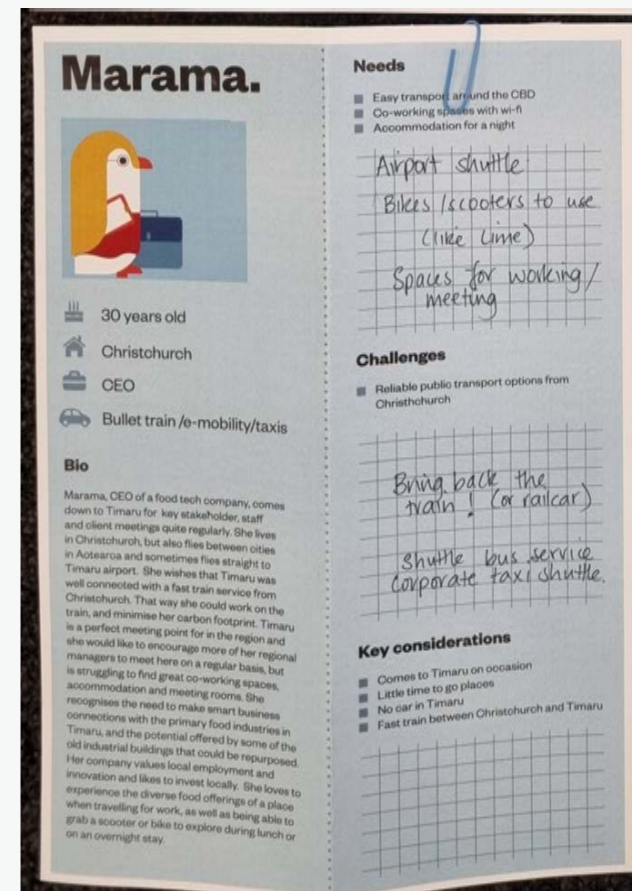 Marama.
30 years old
Christchurch
CEO
Bullet train /e-mobility/taxis
Bio
Marama, CEO of a food tech company, comes
down to Timaru for key stakeholder, staff
and client meetings quite regularly. She lives
in Christchurch, but also flies between cities
in Aotearoa and sometimes flies straight to
Timaru airport. She wishes that Timaru was
well connected with a fast train service from
Christchurch. That way she could work on the
train, and minimise her carbon footprint. Timaru
is a perfect meeting point for in the region and
she would like to encourage more of her regional
managers to meet here on a regular basis, but
is struggling to find great co-working spaces,
accommodation and meeting rooms. She
recognises the need to make smart business
connections with the primary food industries in
Timaru, and the potential offered by some of the
old industrial buildings that could be repurposed.
Her company values local employment and
innovation and likes to invest locally. She loves to
experience the diverse food offerings of a place
when travelling for work, as well as being able to
grab a scooter or bike to explore during lunch or
on an overnight stay.
Needs
Easy transport around the CBD
Co-working spaces with wi-fi
Accommodation for a night
Airport shuttle
Bikes /scooters to use
(like Lime)
Spaces for working/
meeting
Challenges
Reliable public transport options from
Christhchurch
Bring back the
train! (or railcar)
Shuttle bus service
Corporate taxi shuttle.
Key considerations
Comes to Timaru on occasion
Little time to go places
No car in Timaru
Fast train between Christchurch and Timaru